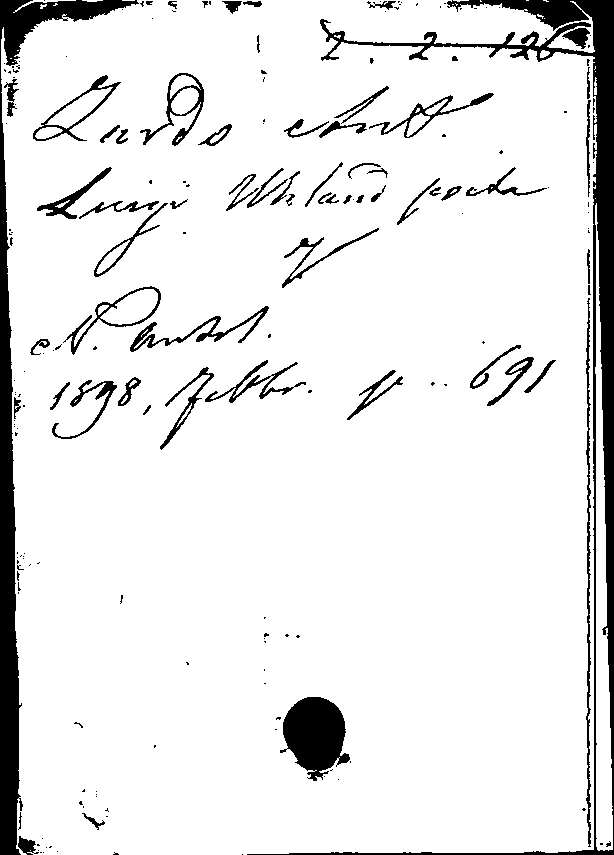 2. 2. 126
Zardo Ant.
Luigi Uhland poeta
N. Antol.
1898, Febbr. p. 691